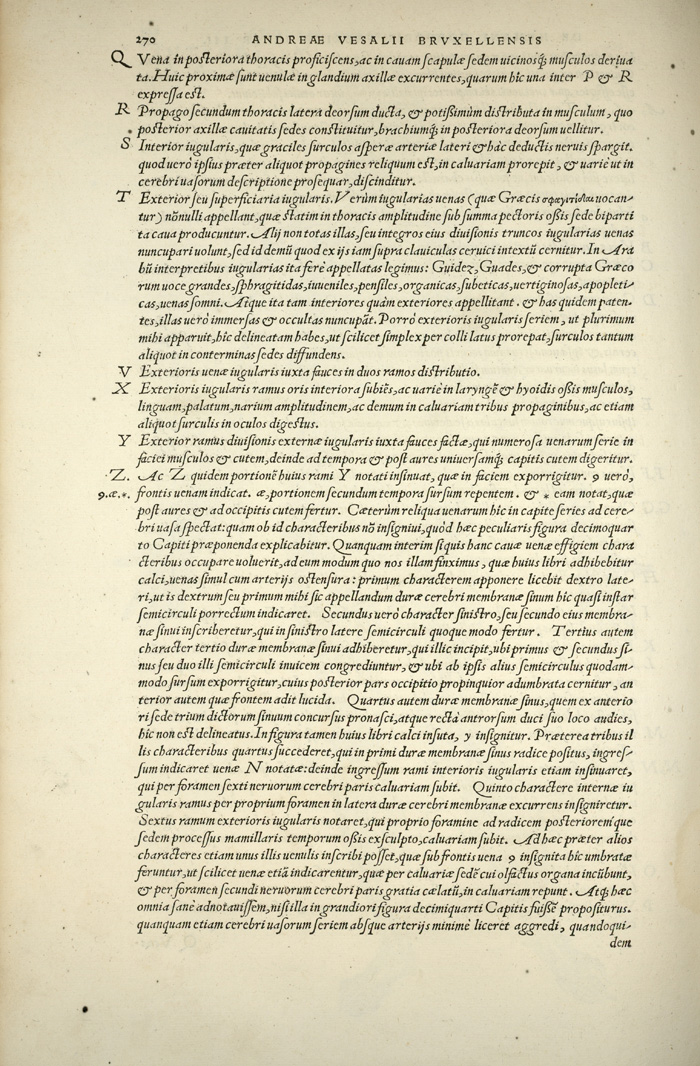 270 ANDREAE VESALII BRVXELLENSIS
Q Vena in posteriora thoracis proficiscens, ac in cauam scapulæ sedem uicinosq́; musculos deriua
ta. Huic proximæ sunt uenulæ in glandium axillæ excurrentes, quarum hic una inter P & R
expressa est.
R Propago secundum thoracis latera deorsum ducta, & potißimùm distributa in musculum, quo
posterior axillæ cauitatis sedes constituitur, brachiumq́; in posteriora deorsum uellitur.
S Interior iugularis, quæ graciles surculos asperæ arteriæ lateri & hàc deductis neruis spargit.
quod uerò ipsius præter aliquot propagines reliquum est, in caluariam prorepit, & uariè ut in
cerebri uasorum descriptione prosequar, discinditur.
T Exterior seu superficiaria iugularis. Verùm iugularias uenas (quæ Græcis σφαγιτίδαι uocan-
tur) nõnulli appellant, quæ statim in thoracis amplitudine sub summa pectoris oßis sede biparti
ta caua producuntur. Alij non totas illas, seu integros eius diuisionis truncos iugularias uenas
nuncupari uolunt, sed id demũ quod ex ijs iam supra clauiculas ceruici intextũ cernitur. In Ara
bũ interpretibus iugularias ita ferè appellatas legimus: Guidez, Guades, & corrupta Græco
rum uoce grandes, sphragitidas, iuueniles, pensiles, organicas, subeticas, uertiginosas, apopleti-
cas, uenas somni. Atque ita tam interiores quàm exteriores appellitant. & has quidem paten-
tes, illas uerò immersas & occultas nuncupãt. Porrò exterioris iugularis seriem, ut plurimum
mihi apparuit, hîc delineatam habes, ut scilicet simplex per colli latus prorepat, surculos tantum
aliquot in conterminas sedes diffundens.
V Exterioris uenæ iugularis iuxta fauces in duos ramos distributio.
X Exterioris iugularis ramus oris interiora subiẽs, ac uariè in laryngẽ & hyoidis oßis musculos,
linguam, palatum, narium amplitudinem, ac demum in caluariam tribus propaginibus, ac etiam
aliquot surculis in oculos digestus.
Y Exterior ramus diuisionis externæ iugularis iuxta fauces factæ, qui numerosa uenarum serie in
faciei musculos & cutem, deinde ad tempora & post aures uniuersamq́; capitis cutem digeritur.
·Z. Ac Z quidem portionẽ huius rami Y notati insinuat, quæ in faciem exporrigitur. 9 uerò,
9.æ.*. frontis uenam indicat. æ, portionem secundum tempora sursum repentem. & * eam notat, quæ
post aures & ad occipitis cutem fertur. Cæterùm reliqua uenarum hic in capite series ad cere-
bri uasa spectat: quam ob id characteribus nõ insigniui, quòd hæc peculiaris figura decimoquar
to Capiti præponenda explicabitur. Quanquam interim si quis hanc cauæ uenæ effigiem chara
cteribus occupare uoluerit, ad eum modum quo nos illam finximus, quæ huius libri adhibebitur
calci, uenas simul cum arterijs ostensura: primum characterem apponere licebit dextro late-
ri, ut is dextrum seu primum mihi sic appellandum duræ cerebri membranæ sinum hic quasi instar
semicirculi porrectum indicaret. Secundus uerò character sinistro, seu secundo eius membra-
næ sinui inscriberetur, qui in sinistro latere semicirculi quoque modo fertur. Tertius autem
character tertio duræ membranæ sinui adhiberetur, qui illic incipit, ubi primus & secundus si-
nus seu duo illi semicirculi inuicem congrediuntur, & ubi ab ipsis alius semicirculus quodam-
modo sursum exporrigitur, cuius posterior pars occipitio propinquior adumbrata cernitur, an
terior autem quæ frontem adit lucida. Quartus autem duræ membranæ sinus, quem ex anterio
ri sede trium dictorum sinuum concursus pronasci, atque rectà antrorsum duci suo loco audies,
hic non est delineatus. In figura tamen huius libri calci insuta, y insignitur. Præterea tribus il
lis characteribus quartus succederet, qui in primi duræ membranæ sinus radice positus, ingres-
sum indicaret uenæ N notatæ: deinde ingressum rami interioris iugularis etiam insinuaret,
qui per foramen sexti neruorum cerebri paris caluariam subit. Quinto charactere internæ iu
gularis ramus per proprium foramen in latera duræ cerebri membranæ excurrens insigniretur.
Sextus ramum exterioris iugularis notaret, qui proprio foramine ad radicem posterioremque
sedem processus mamillaris temporum oßis exsculpto, caluariam subit. Ad hæc præter alios
characteres etiam unus illis uenulis inscribi posset, quæ sub frontis uena 9 insignita hic umbratæ
feruntur, ut scilicet uenæ etiã indicarentur, quæ per caluariæ sedẽ cui olfactus organa incũbunt,
& per foramen secundi neruorum cerebri paris gratia cælatũ, in caluariam repunt. Atq́; hæc
omnia sanè adnotauissem, nisi illa in grandiori figura decimiquarti Capitis fuissẽ propositurus.
quanquam etiam cerebri uasorum seriem absque arterijs minimè liceret aggredi, quandoqui-
dem